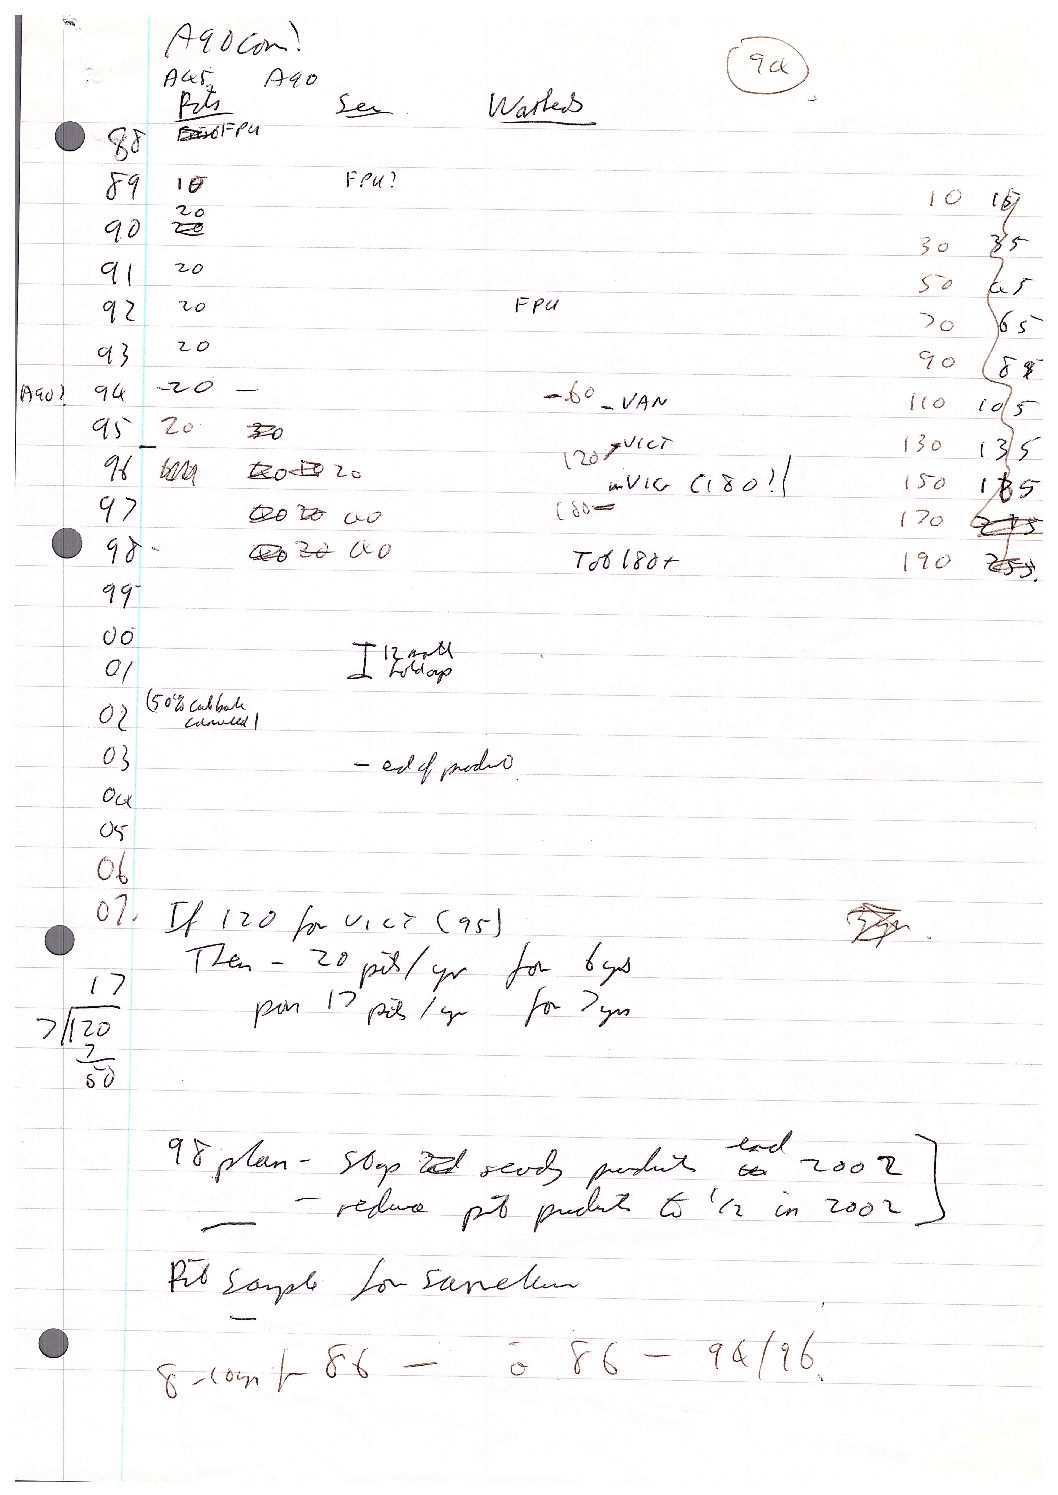 A90 Com?
9a
A45 A90
Pits Sec Warheads
88 FPU
89 10 FPU? 10 15
20
90 20 30 35
91 20 50 45
92 20 FPU 70 65
93 20 90 85
A90? 94 -20 - -60 - VAN 110 105
95 20 30 120 VICT 130 135
96 20 VIG (180?) 150 185
97 40 20 40 180- 170 215
98 - 40 20 40 Tot 180+ 190 255
99
00
01 12 month holdup
02 (50% cutback cancelled)
03 - end of product
04
05
06
07. If 120 for VICT (95)
Then - 20 pits/yr for 6yrs
17 pits/yr for 7yrs
17
7 120
7
50
98 plan - stop products end 2002
- reduce pit products to 1/2 in 2002
Pit sample for
8-10yr for 86 - 86 - 94/96.